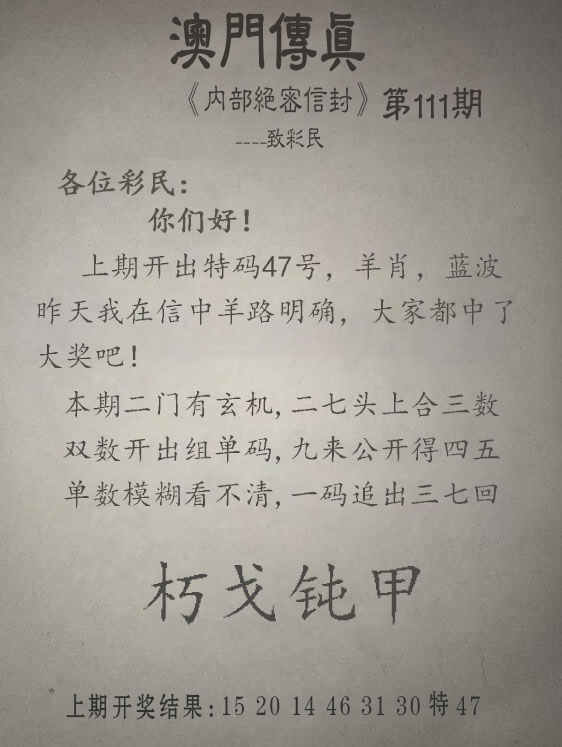 澳門傳真
《内部絕密信封》第111期
----致彩民
各位彩民：
你们好！
上期开出特码47号，羊肖，蓝波
昨天我在信中羊路明确，大家都中了
大奖吧！
本期二门有玄机,二七头上合三数
双数开出组单码,九来公开得四五
单数模糊看不清,一码追出三七回
朽戈钝甲
上期开奖结果:15 20 14 46 31 30 特 47